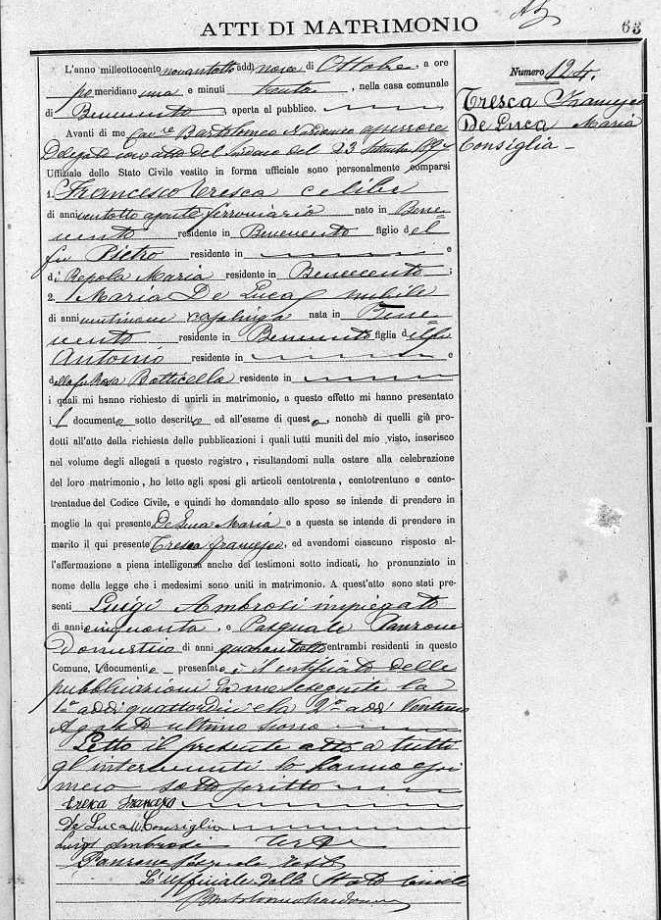 63
ATTI DI MATRIMONIO
Numero 124.
Tresca Francesco
De Luca Maria
Consiglia
L'anno milleottocento novantotto addì nove di Ottobre, a ore
pomeridiane una e minuti trenta, nella casa comunale
di Benevento aperta al pubblico.
Avanti di me Cav.re Bartolomeo assessore
Delegato con atto del Sindaco del 23 1897
Uffiziale dello Stato Civile vestito in forma ufficiale sono personalmente comparsi
1. Francesco Tresca celibe
di anni ventotto agente ferroviario nato in Bene-
vento residente in Benevento figlio del
fu Pietro residente in e
di Repola Maria residente in Benevento;
2. Maria De Luca nubile
di anni ventinove casalinga nata in Bene
vento residente in Benevento figlia del fu
Antonio residente in e
della fu Rosa Botticella residente in
i quali mi hanno richiesto di unirli in matrimonio, a questo effetto mi hanno presentato
il documento sotto descritto ed all'esame di questo, nonchè di quelli già pro-
dotti all'atto della richiesta delle pubblicazioni i quali tutti muniti del mio visto, inserisco
nel volume degli allegati a questo registro, risultandomi nulla ostare alla celebrazione
del loro matrimonio, ho letto agli sposi gli articoli centotrenta, centotrentuno e cento-
trentadue del Codice Civile, e quindi ho domandato allo sposo se intende di prendere in
moglie la qui presente De Luca Maria e a questa se intende di prendere in
marito il qui presente Tresca Francesco, ed avendomi ciascuno risposto al-
l'affermazione a piena intelligenza anche dei testimoni sotto indicati, ho pronunziato in
nome della legge che i medesimi sono uniti in matrimonio. A quest'atto sono stati pre-
senti Luigi Ambrosi impiegato
di anni cinquanta, e Pasquale Panzone
domestico di anni quarantotto entrambi residenti in questo
Comune. Il documento presentato è il certificato delle
pubblicazioni da me eseguite la
1a addì quattordici e la 2a addì ventuno
Agosto ultimo scorso
Letto il presente atto a tutti
gl'intervenuti lo hanno essi
meco sottoscritto
Tresca Francesco
De Luca M. Consiglia
Luigi Ambrosi Teste
Panzone Pasquale Teste
L'uffiziale dello Stato Civile
Bartolomeo